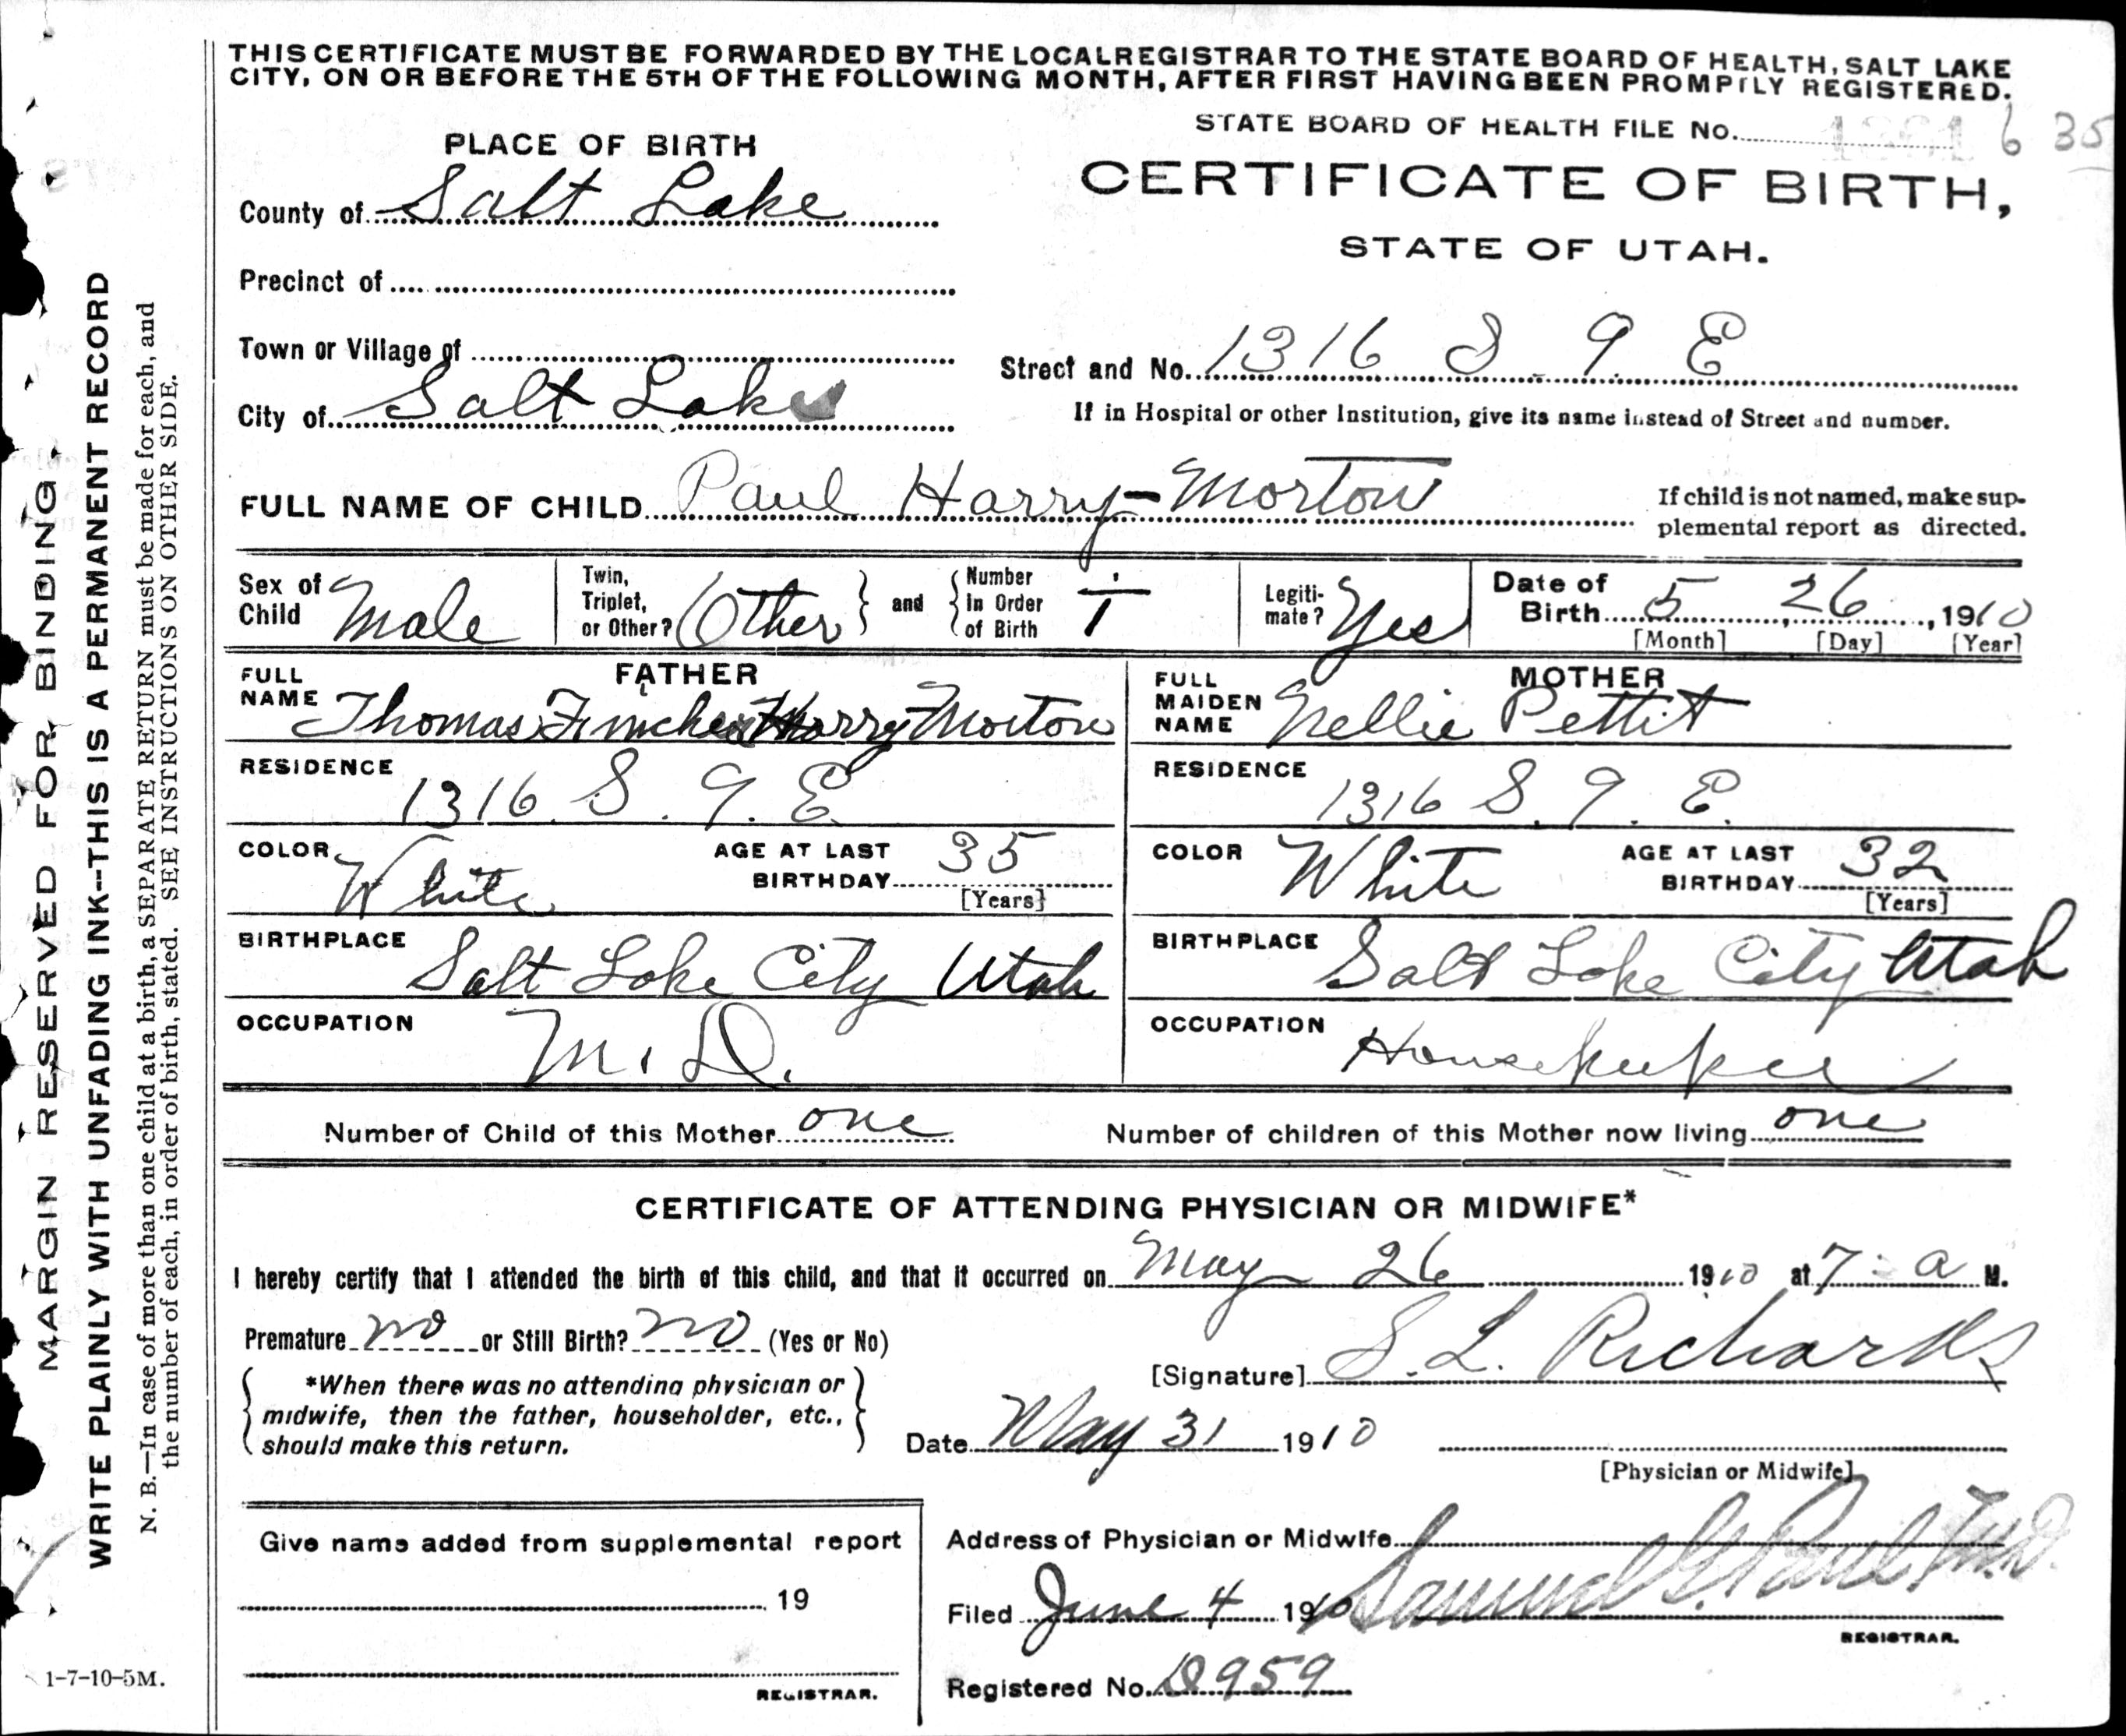 THIS CERTIFICATE MUST BE FORWARDED BY THE LOCAL REGISTRAR TO THE STATE BOARD OF HEALTH, SALT LAKE
CITY, ON OR BEFORE THE 5TH OF THE FOLLOWING MONTH, AFTER FIRST HAVING BEEN PROMPTLY REGISTERED.
STATE BOARD OF HEALTH FILE NO. 6 35
PLACE OF BIRTH
CERTIFICATE OF BIRTH,
STATE OF UTAH.
County of Salt Lake
Precinct of
Town or Village of
Street and No. 1316 S. 9. E
City of Salt Lake
If in Hospital or other Institution, give its name instead of Street and number.
FULL NAME OF CHILD Paul Harry Morton
If child is not named, make sup-
plemental report as directed.
Sex of Child Male
Twin, Triplet, or Other? Other
and
Number In Order of Birth 1
Legiti-mate? Yes
Date of Birth 5, 26, 1910
[Month] [Day] [Year]
FATHER
FULL NAME Thomas Harry Morton
RESIDENCE 1316. S. 9. E.
COLOR White
AGE AT LAST BIRTHDAY 35
[Years]
BIRTHPLACE Salt Lake City Utah
OCCUPATION M. D.
MOTHER
FULL MAIDEN NAME Nellie Pettit
RESIDENCE 1316 S. 9. E.
COLOR White
AGE AT LAST BIRTHDAY 32
[Years]
BIRTHPLACE Salt Lake City Utah
OCCUPATION Housekeeper
Number of Child of this Mother one
Number of children of this Mother now living one
CERTIFICATE OF ATTENDING PHYSICIAN OR MIDWIFE*
I hereby certify that I attended the birth of this child, and that it occurred on May 26 1910 at 7 a M.
Premature no or Still Birth? no (Yes or No)
[Signature] S. L. Richards
*When there was no attending physician or
midwife, then the father, householder, etc.,
should make this return.
Date May 31 1910
[Physician or Midwife]
Give name added from supplemental report
19
REGISTRAR.
Address of Physician or Midwife
Filed June 4 1910 Samuel G. Paul, M.D.
REGISTRAR.
Registered No. D959
MARGIN RESERVED FOR BINDING.
WRITE PLAINLY WITH UNFADING INK--THIS IS A PERMANENT RECORD
N. B.—In case of more than one child at a birth, a SEPARATE RETURN must be made for each, and
the number of each, in order of birth, stated. SEE INSTRUCTIONS ON OTHER SIDE.
1-7-10-5M.